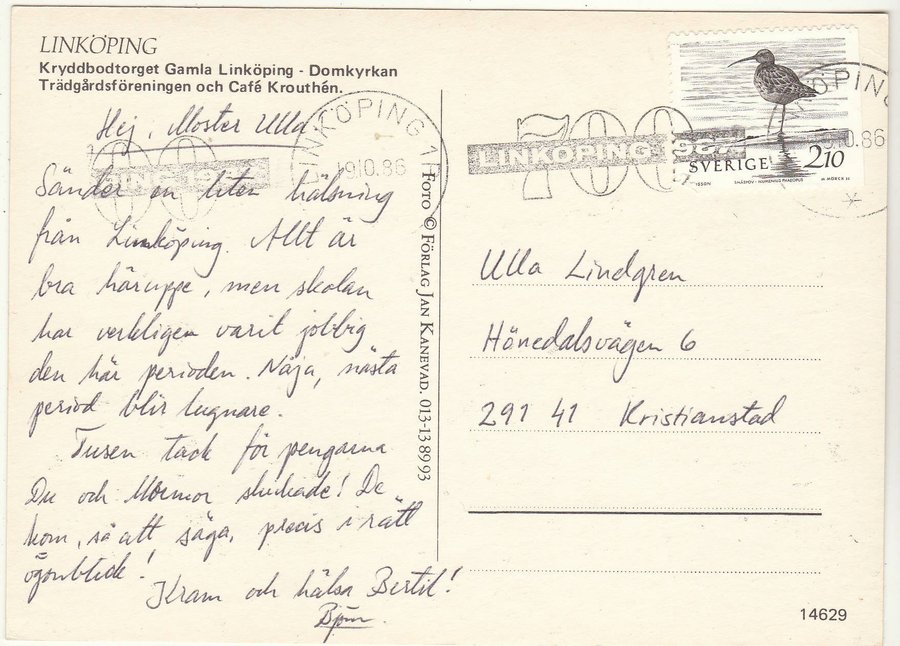 LINKÖPING
Kryddbodtorget Gamla Linköping - Domkyrkan
Trädgårdsföreningen och Café Krouthén.
Hej, Moster Ulla
Sänder en liten hälsning
från Linköping. Allt är
bra häruppe, men skolan
har verkligen varit jobbig
den här perioden. Nåja, nästa
period blir lugnare.
Tusen tack för pengarna
Du och Mormor skickade! De
kom, så att säga, precis i rätt
ögonblick!
Kram och hälsa Bertil!
Björn
LINKÖPING 1
19.10.86
FOTO © FÖRLAG JAN KANEVAD. 013-13 89 93
700
LINKÖPING 1987
SVERIGE 210
SMÅSPOV - NUMENIUS PHAEOPUS
LINKÖPING
10.86
Ulla Lindgren
Hönedalsvägen 6
291 41 Kristianstad
14629